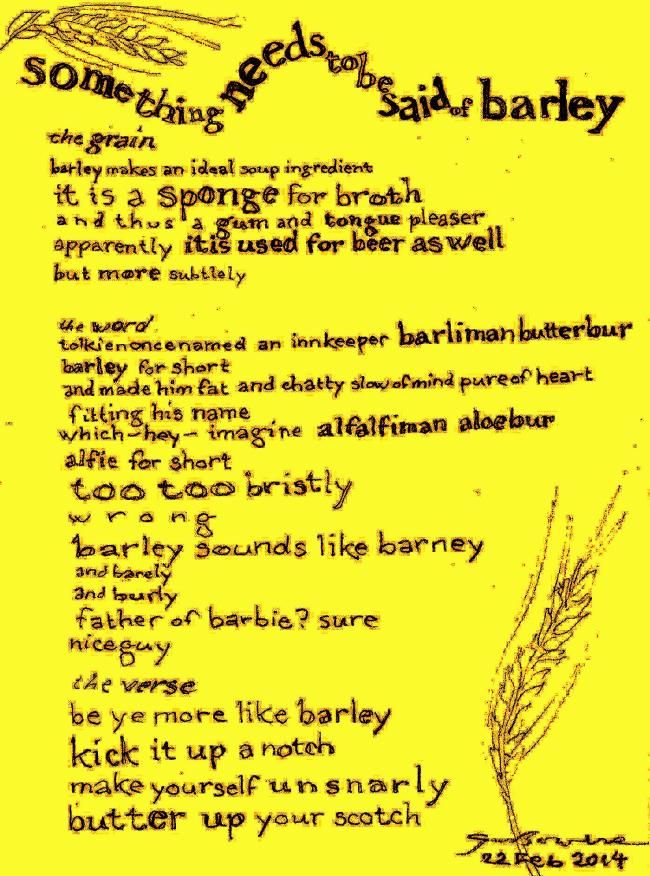 something needs to be said of barley
the grain
barley makes an ideal soup ingredient
it is a sponge for broth
and thus a gum and tongue pleaser
apparently it is used for beer as well
but more subtlely
the word
tolkien once named an innkeeper barliman butterbur
barley for short
and made him fat and chatty slow of mind pure of heart
fitting his name
which-hey- imagine alfalfiman aloebur
alfie for short
too too bristly
wrong
barley sounds like barney
and barely
and burly
father of barbie? sure
nice guy
the verse
be ye more like barley
kick it up a notch
make yourself unsnarly
butter up your scotch
22 Feb 2014